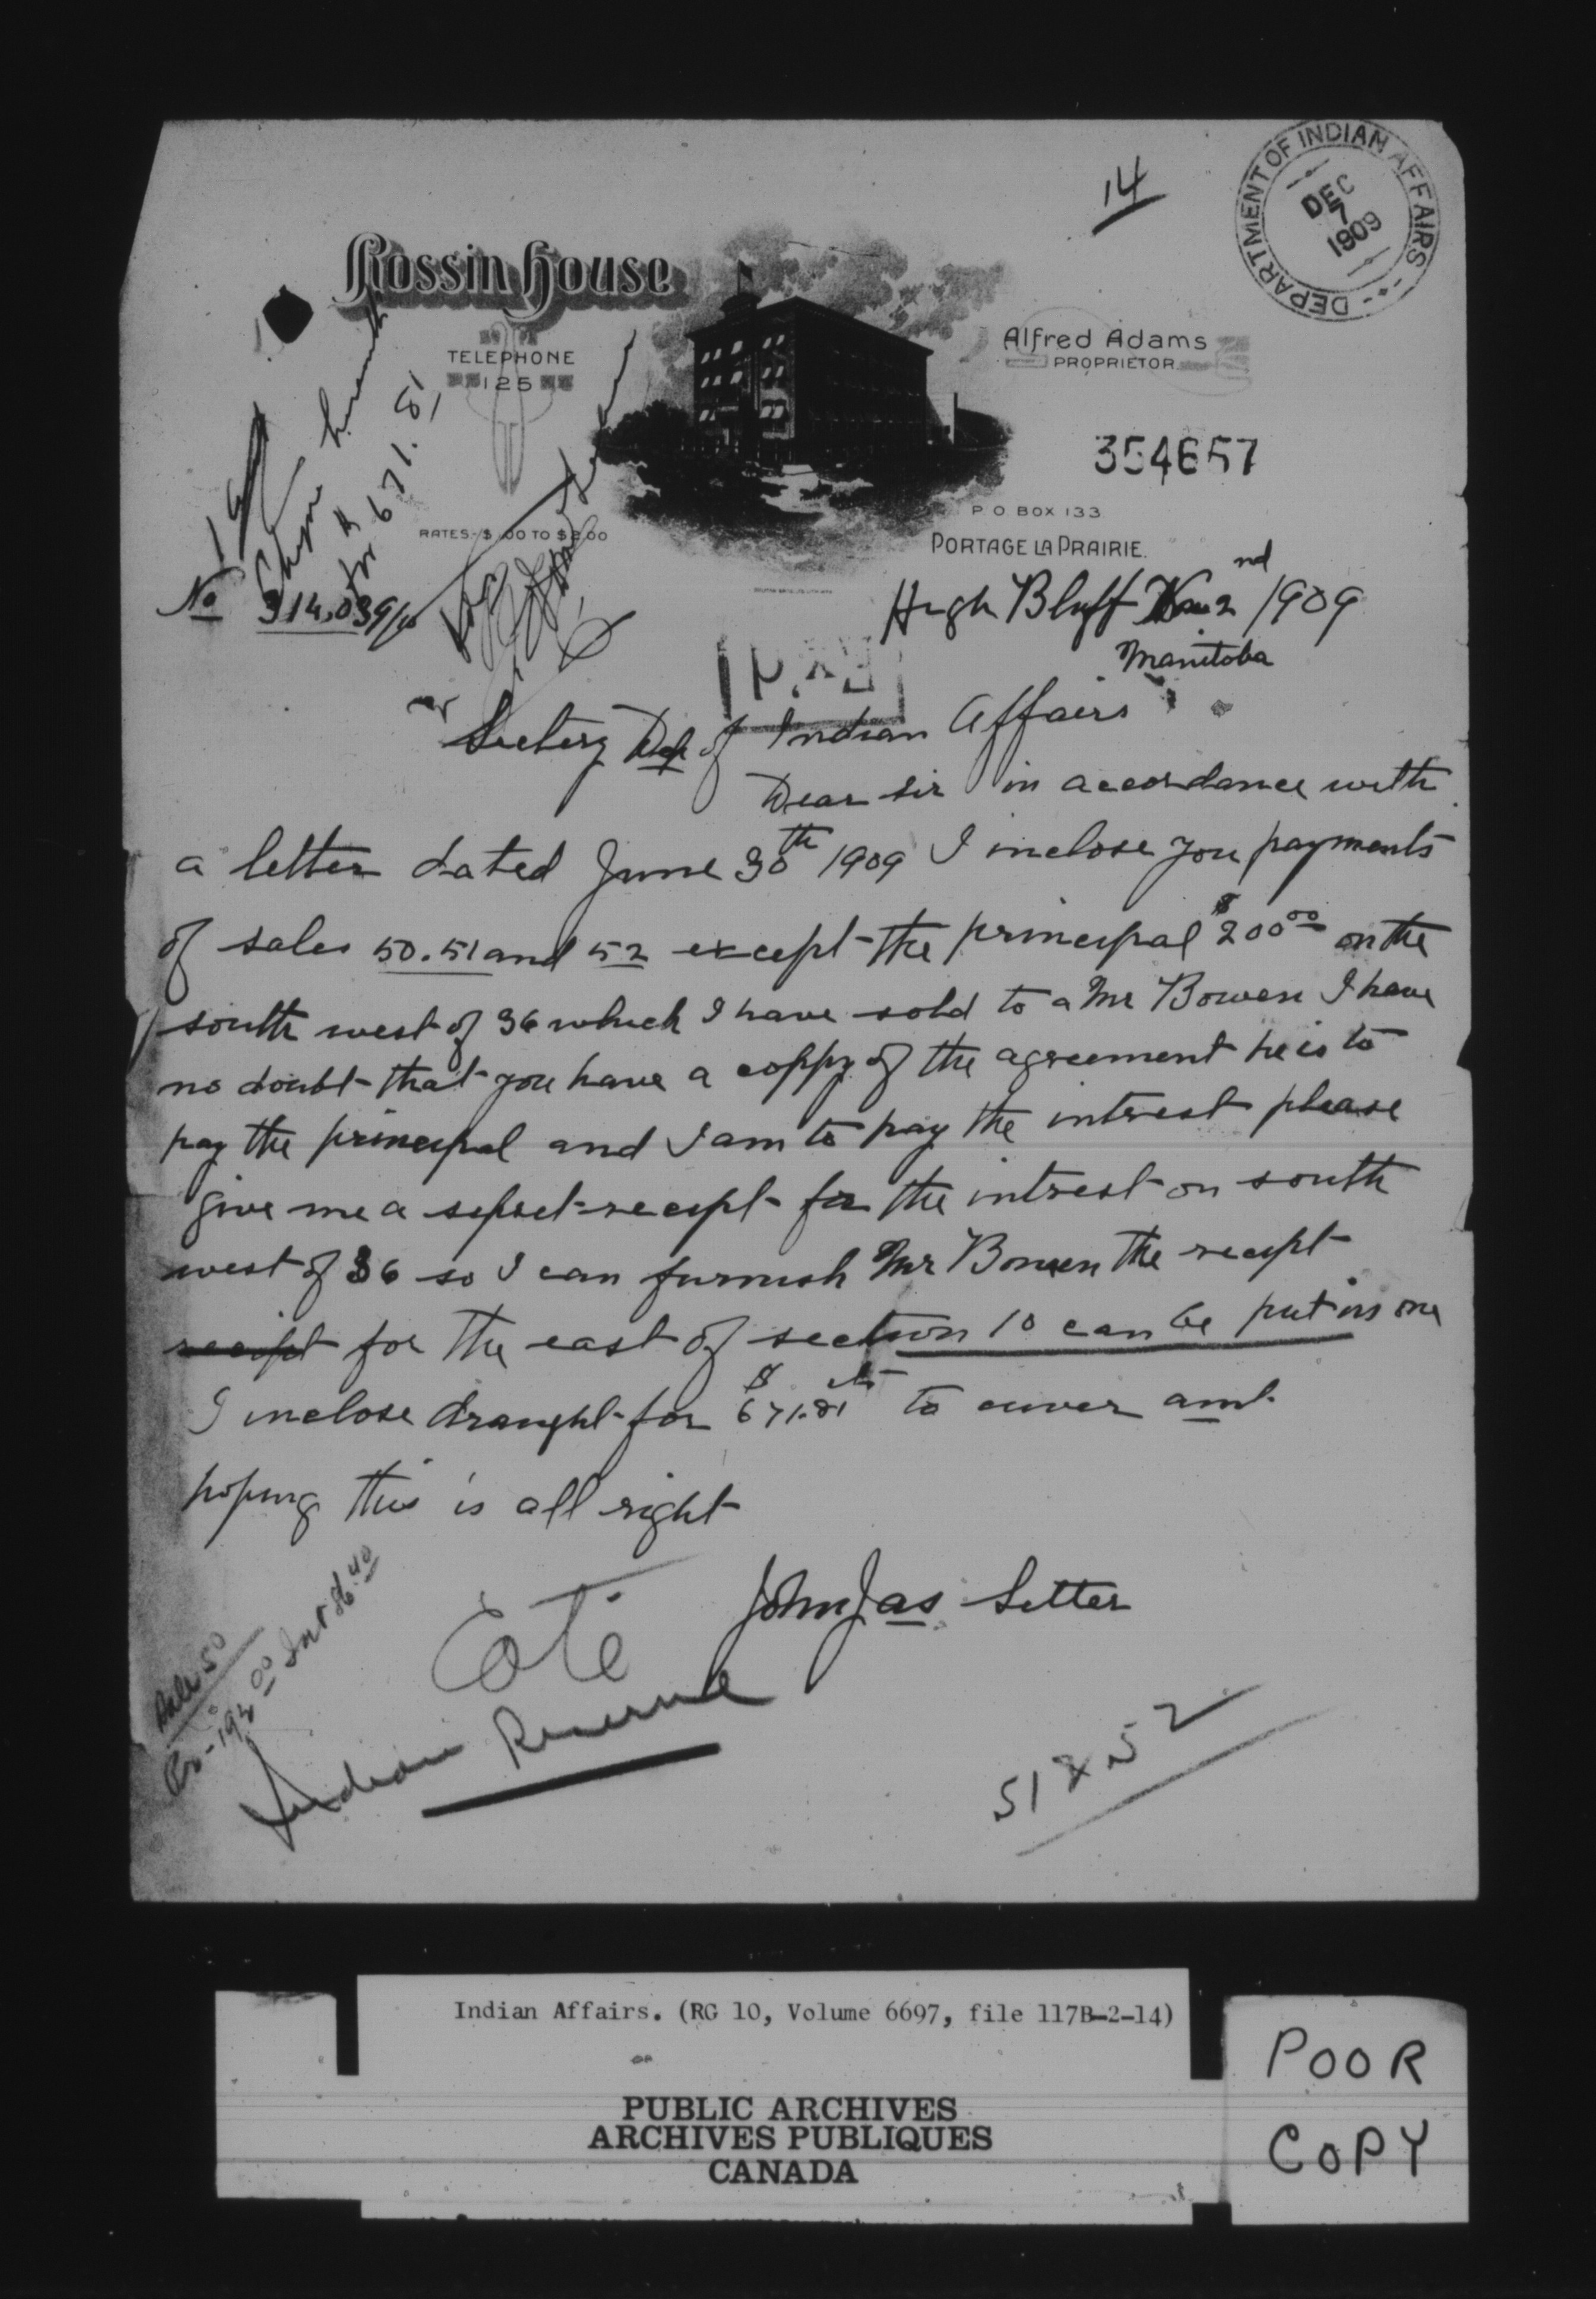 14
DEPARTMENT OF INDIAN AFFAIRS
DEC
7
1909
Rossin House
TELEPHONE
125
Alfred Adams
PROPRIETOR
354657
RATES $ .00 TO $2.00
P O BOX 133
PORTAGE LA PRAIRIE.
Cheque herewith
for $ 671.81
No 314,039/10
High Bluff 2nd 1909
Manitoba
Dep of Indian Affairs
Dear Sir in accordance with
a letter dated June 30th 1909 I inclose you payments
of sales 50.51 and 52 except the principal $200 00 on the
south west of 36 which I have sold to a Mr Bowen I have
no doubt that you have a coppy of the agreement he is to
pay the principal and I am to pay the intrest please
give me a receipt for the intrest on south
west of 36 so I can furnish Mr Bowen the receipt
receipt for the east of section 10 can be put in one
I inclose draught for $671.81 cts to cuver amt
hoping this is all right
John Jas Setter
Coté
Indian Reserve
Sale 50
Pr - 192 00 Int 86.40
51 & 52
Indian Affairs. (RG 10, Volume 6697, file 117B-2-14)
PUBLIC ARCHIVES
ARCHIVES PUBLIQUES
CANADA
POOR
COPY